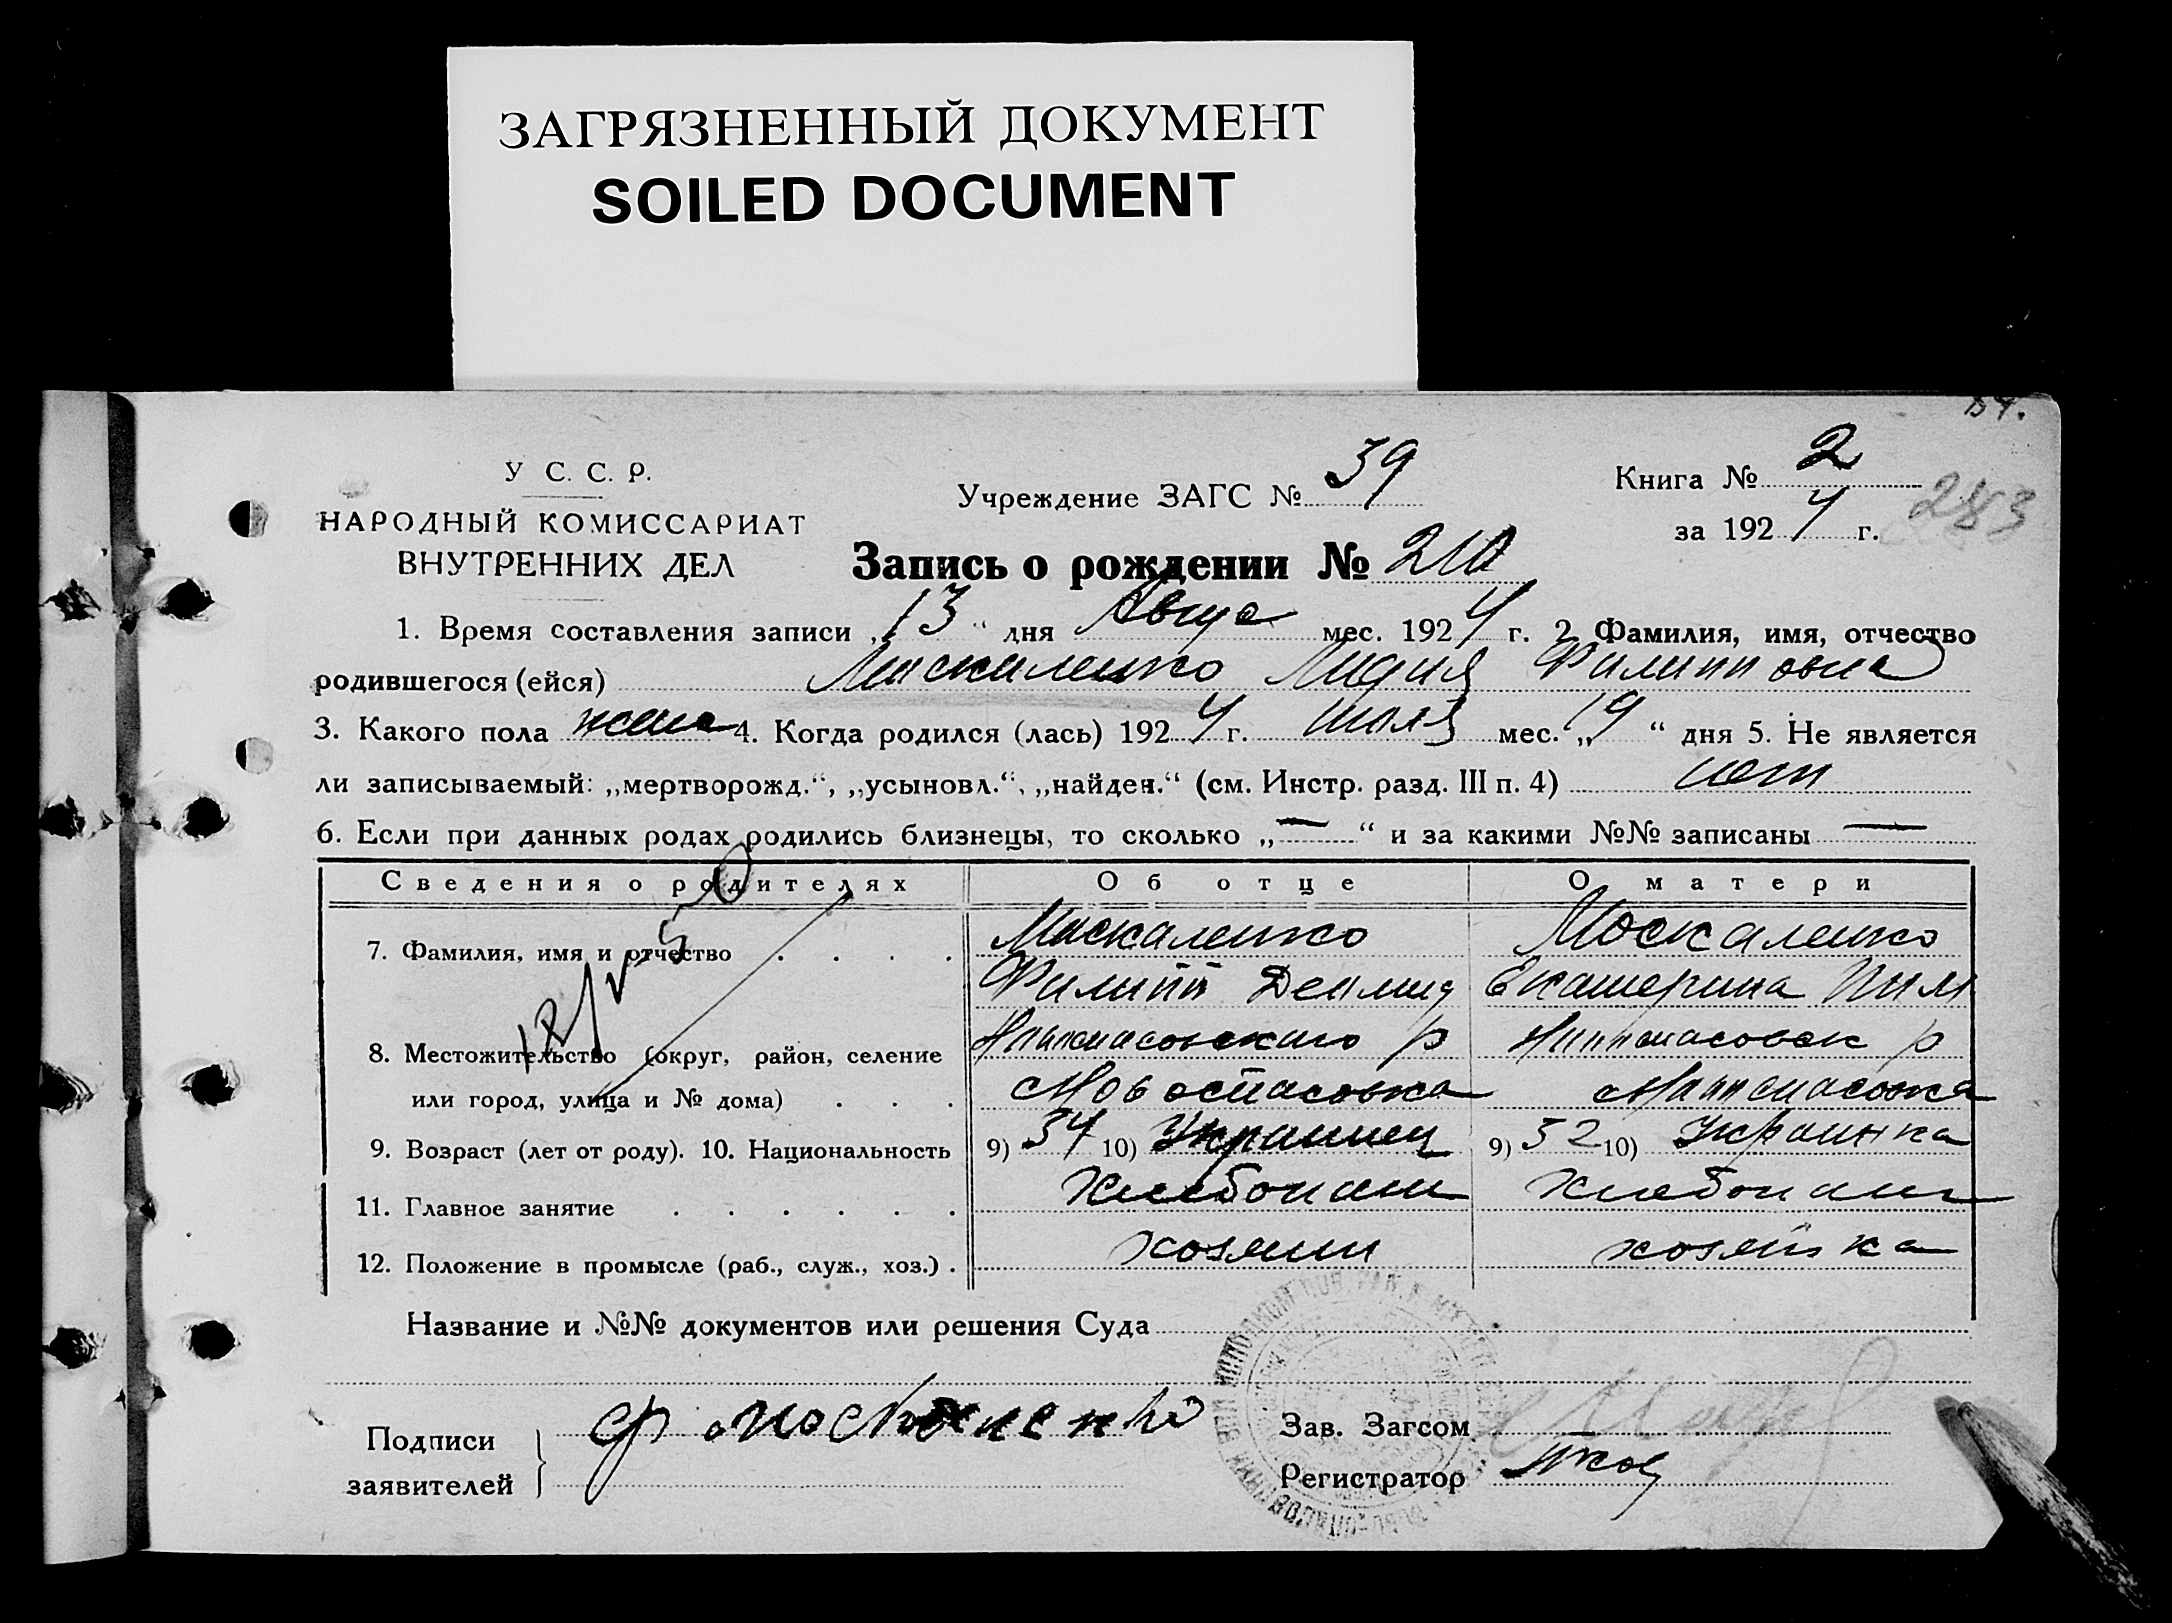 ЗАГРЯЗНЕННЫЙ ДОКУМЕНТ
SOILED DOCUMENT
У С. С. Р.
НАРОДНЫЙ КОМИССАРИАТ
ВНУТРЕННИХ ДЕЛ
Учреждение ЗАГС № 39
Книга № 2
за 1924 г. 283
Запись о рождении № 210
1. Время составления записи „13“ дня Авгус мес. 1924 г. 2. Фамилия, имя, отчество
родившегося (ейся) Москаленко Лидия Филипповна
3. Какого пола женс 4. Когда родился (лась) 1924 г. июля мес. „19“ дня 5. Не является
ли записываемый: „мертворожд.“, „усыновл.“, „найден.“ (см. Инстр. разд. III п. 4) нет
6. Если при данных родах родились близнецы, то сколько „—“ и за какими №№ записаны —
Сведения о родителях Об отце О матери
7. Фамилия, имя и отчество . . . . Москаленко Москаленко
Филипп Демид Екатерина
8. Местожительство (округ, район, селение р р
или город, улица и № дома) . . . Новоспасовка
9. Возраст (лет от роду). 10. Национальность 9) 34 10) Украинец 9) 32 10) Украинка
11. Главное занятие . . . . . . Хлебопаш Хлебопаш
12. Положение в промысле (раб., служ., хоз.) . хозяин хозяйка
Название и №№ документов или решения Суда
Подписи
заявителей
Ф Москаленко
Зав. Загсом
Регистратор